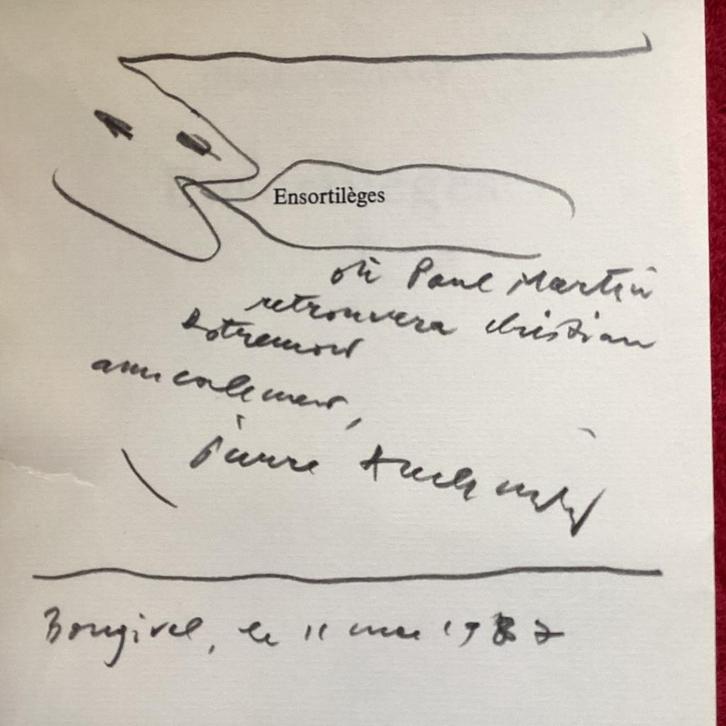 Ensortilèges
où Paul Martin
retrouvera christian
dotremont
amicalement,
Pierre Alechinsky
Bougival, le 11 mai 1987